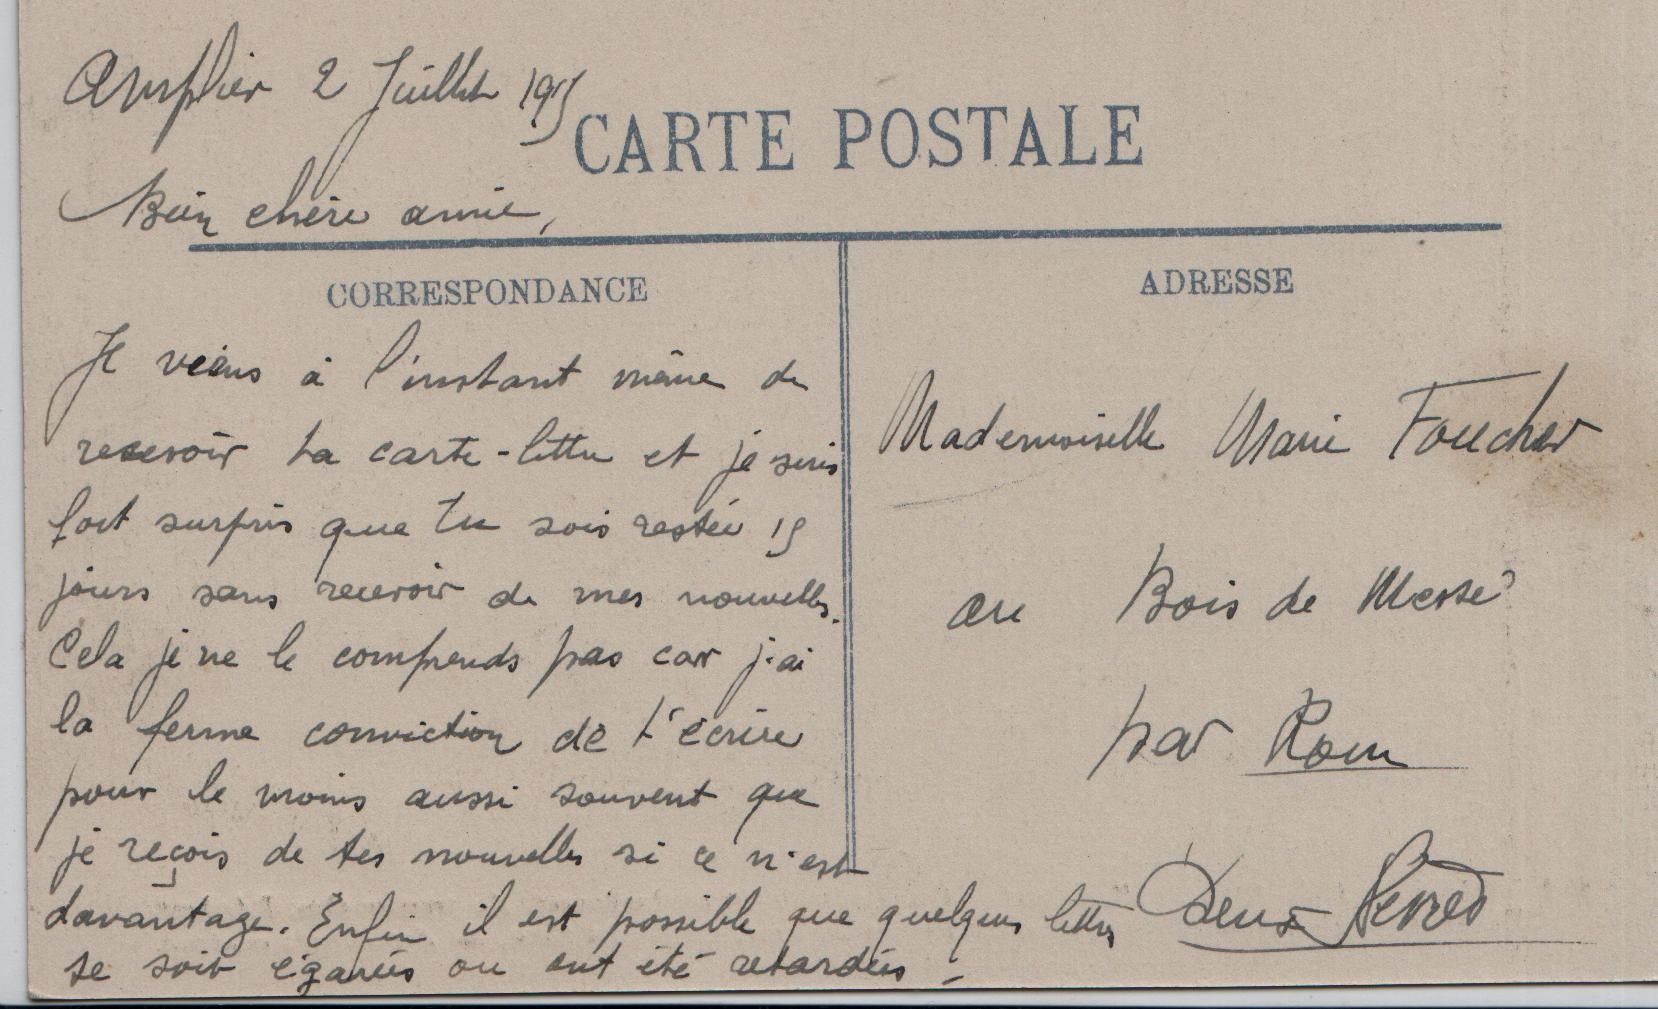 Amplier 2 Juillet 1915
CARTE POSTALE
Bien chère amie,
CORRESPONDANCE
Je viens à l'instant même de
recevoir ta carte-lettre et je suis
fort surpris que tu sois restée 15
jours sans recevoir de mes nouvelles.
Cela je ne le comprends pas car j'ai
la ferme conviction de t'écrire
pour le moins aussi souvent que
je reçois de tes nouvelles si ce n'est
davantage. Enfin il est possible que quelques lettres
se soit égarées ou ont été retardées -
ADRESSE
Mademoiselle Marie Foucher
au Bois de Messé
par Rom
Deux Sèvres